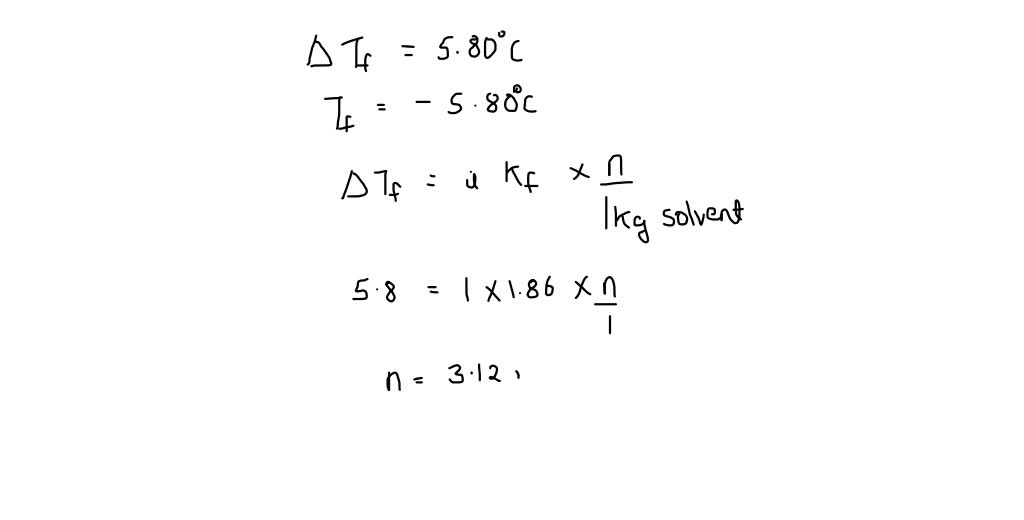 Δ Tf = 5.80°C
Tf = - 5.80°C
ΔTf = i Kf × n / 1kg solvent
5.8 = 1 × 1.86 × n / 1
n = 3.12